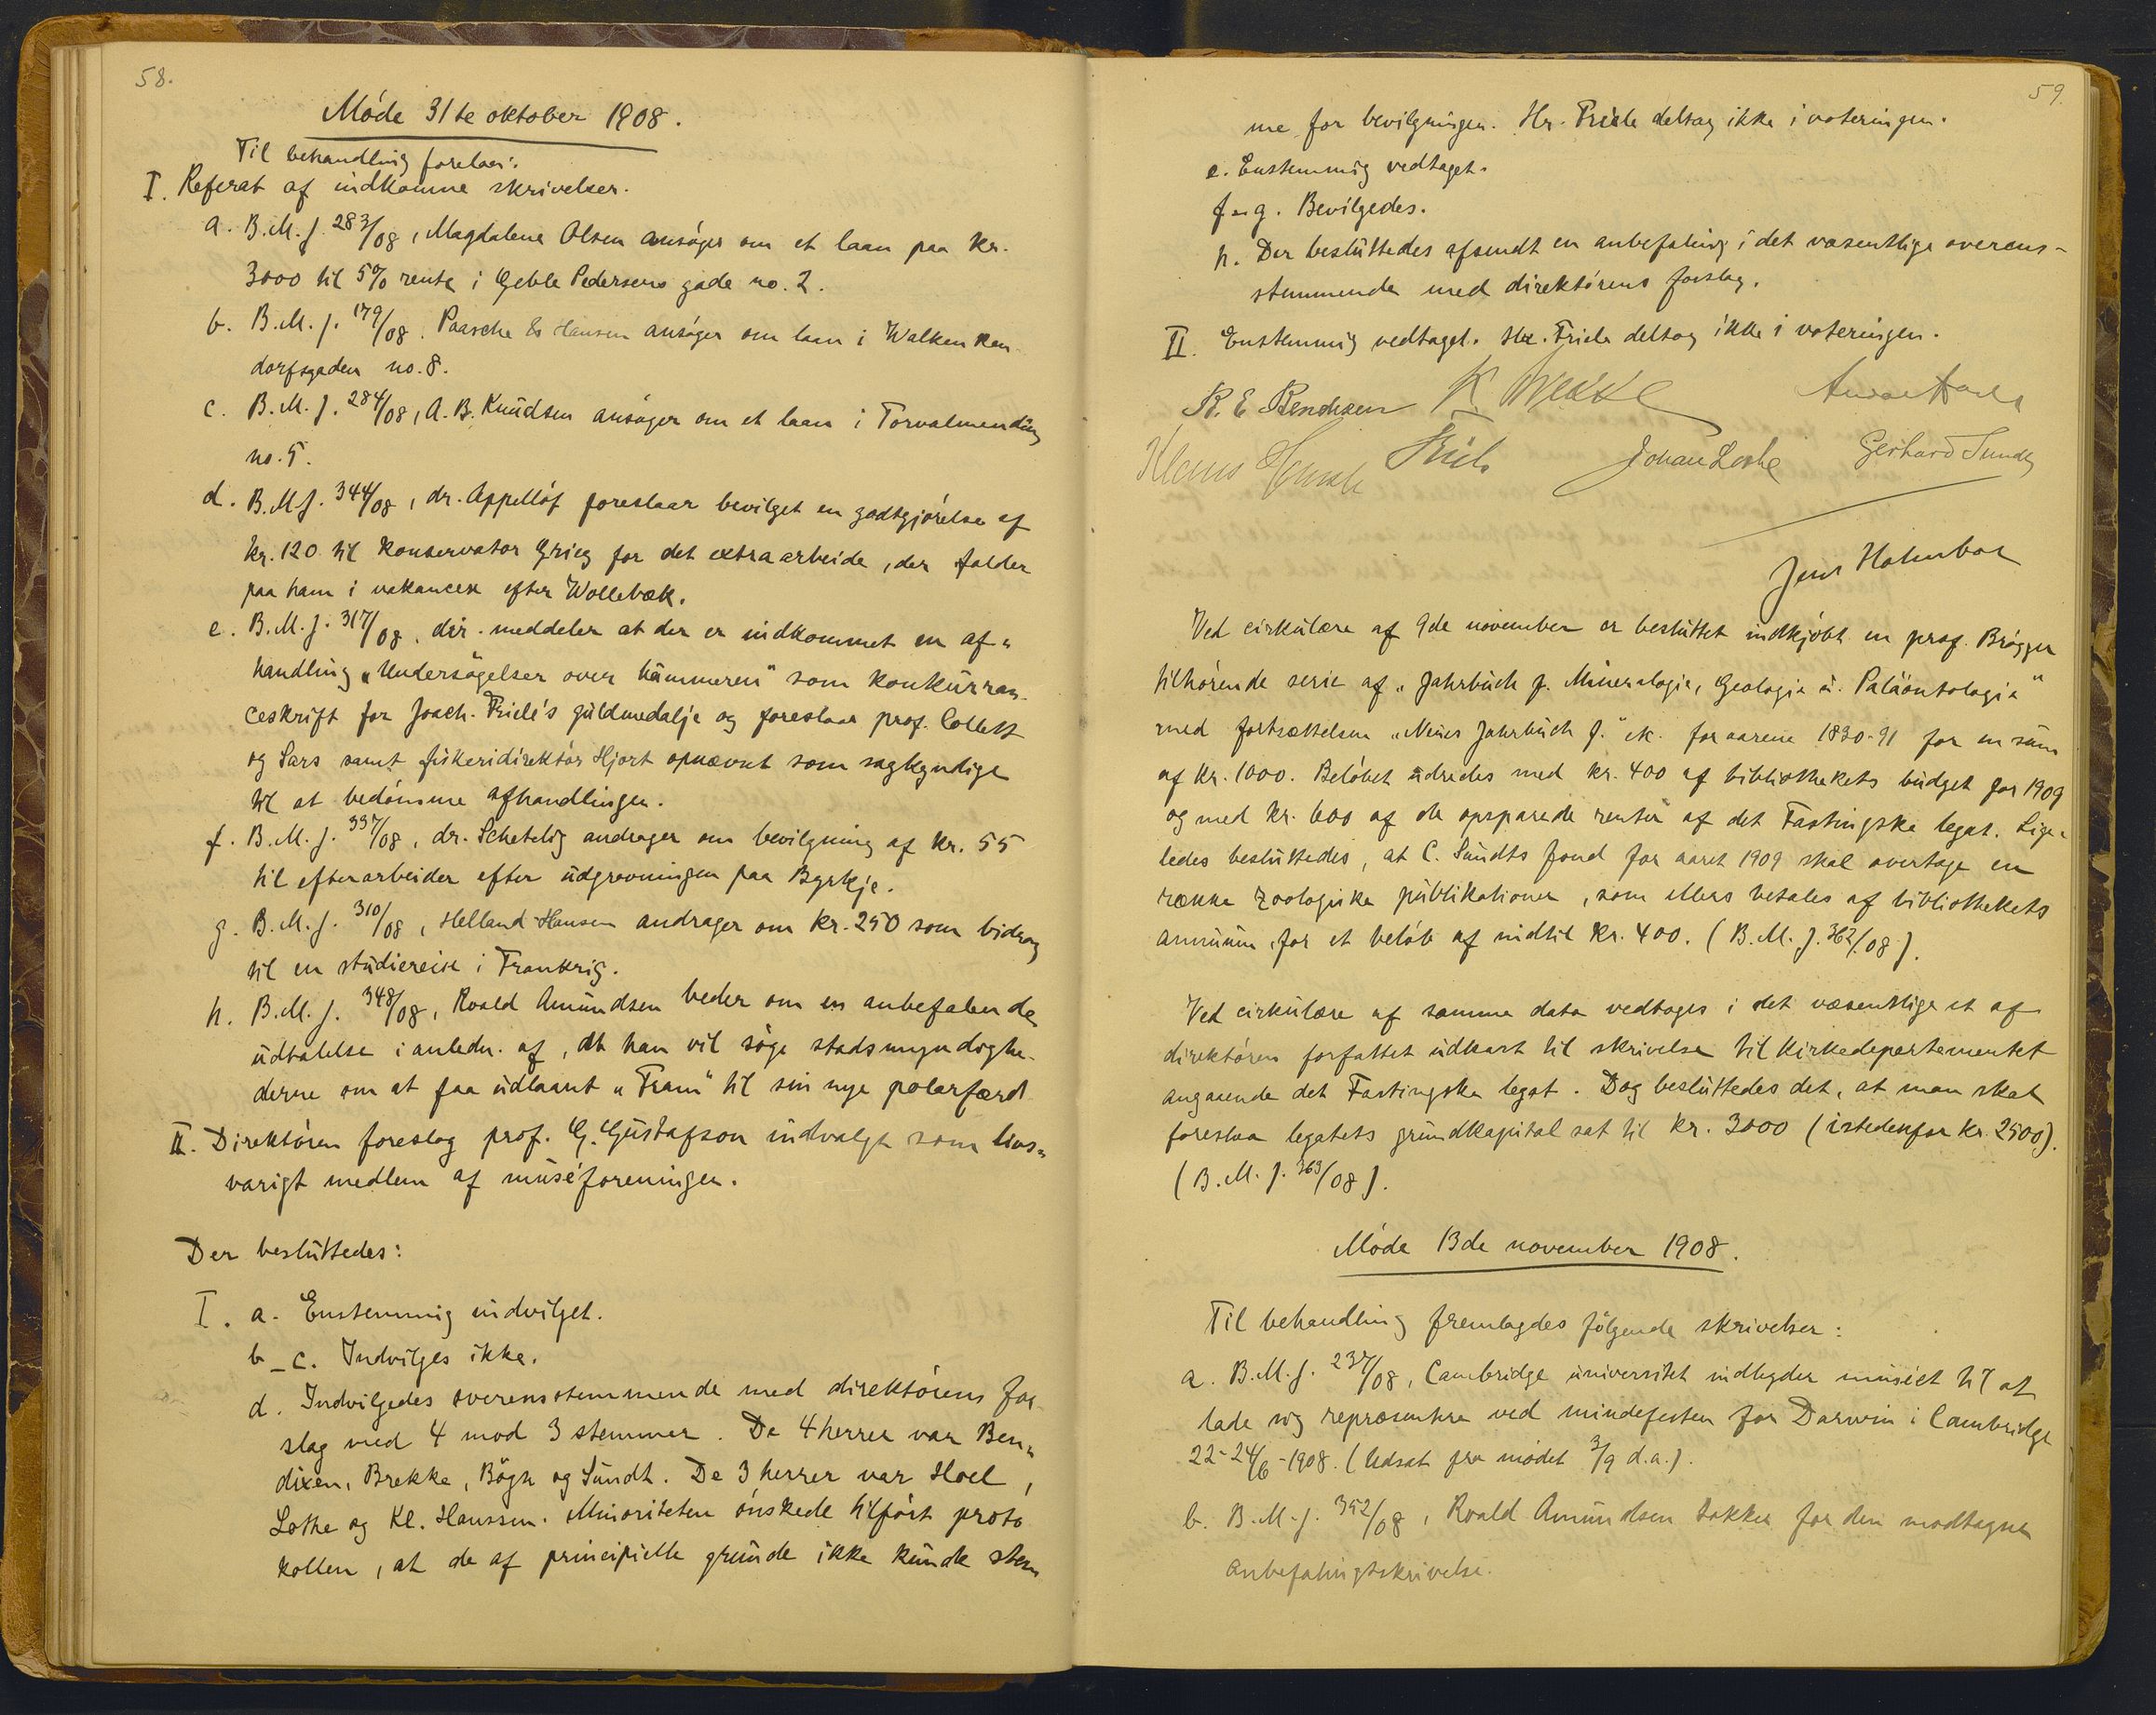 58.
Møde 31te oktober 1908.
Til behandling forelaa:
I. Referat af indkomne skrivelser.
a. B.M.J. 283/08, Magdalena Olsen ansøger om et laan paa kr.
3000 til 5% rente i Geble Pedersens gade no. 2.
b. B.M.J. 179/08. Paasche & Hansen ansøger om laan i Walken ken
dorfsgaden no. 8.
c. B.M.J. 284/08, A.B. Knudsen ansøger om et laan i Torvalmending
no. 5.
d. B.M.J. 344/08, dr. Appelløf foreslaar bevilget en godtgjørelse af
kr. 120 til konservator Grieg for det extraarbeide, der falder
paa ham i vakancen efter Wollebæk.
e. B.M.J. 317/08, dir. meddeler at der er indkommet en af-
handling „Undersøgelser over hummeren" som konkurran-
ceskrift for Joach. Friele's guldmedalje og foreslaar prof. Collett
og Sars samt fiskeridirektør Hjort opnævnt som sagkyndige
til at bedømme afhandlingen.
f. B.M.J. 337/08, dr. Schetelig andrager om bevilgning af kr. 55
til efterarbeider efter udgravningen paa Byrkje.
g. B.M.J. 310/08, Helland-Hansen andrager om kr. 250 som bidrag
til en studiereise i Frankrig.
h. B.M.J. 348/08, Roald Amundsen beder om en anbefalende
udtalelse i anledn. af, at han vil søge stadsmyndighe-
derne om at faa udlaant „Fram" til sin nye polarfærd
II. Direktøren foreslog prof. G. Gustafson indvalgt som livs-
varigt medlem af muséforeningen.
Der besluttedes:
I. a. Enstemmig indvilget.
b-c. Indvilges ikke.
d. Indvilgedes overensstemmende med direktørens for-
slag med 4 mod 3 stemmer. De 4 herrer var Ben-
dixen, Brekke, Bøgh og Sundt. De 3 herrer var Hoel,
Lothe og Kl. Hanssen. Minoriteten ønskede tilført proto
kollen, at de af principielle grunde ikke kunde stem
59.
me for bevilgningen. Hr. Friele deltog ikke i voteringen.
e. Enstemmig vedtaget.
f-g. Bevilgedes.
h. Der besluttedes afsendt en anbefaling i det væsentlige overens-
stemmende med direktørens forslag.
II. Enstemmig vedtaget. Hr. Friele deltog ikke i voteringen.
B. E. Bendixen K Brekke
Klaus Hanssen Friele Johan Lothe Gerhard Sundt
Jens Holmboe
Ved cirkulære af 9de november er besluttet indkjøbt en prof. Brøgger
tilhørende serie af „Jahrbuch f. Mineralogie, Geologie u. Paläontologie"
med fortsættelsen „Neues Jahrbuch f." etc. for aarene 1830-91 for en sum
af kr. 1000. Beløbet udredes med kr. 400 af bibliothekets budget for 1909
og med kr. 600 af de opsparede renter af det Fastingske legat. Lige-
ledes besluttedes, at C. Sundts fond for aaret 1909 skal overtage en
række zoologiske publikationer, som ellers betales af bibliothekets
annuum, for et beløb af indtil kr. 400. (B.M.J. 362/08).
Ved cirkulære af samme dato vedtoges i det væsentlige et af
direktøren forfattet udkast til skrivelse til Kirkedepartementet
angaaende det Fastingske legat. Dog besluttedes det, at man skal
foreslaa legatets grundkapital sat til kr. 3000 (istedenfor kr. 2500).
(B.M.J. 363/08).
Møde 13de november 1908.
Til behandling fremlagdes følgende skrivelser:
a. B.M.J. 237/08, Cambridge universitet indbyder muséet til at
lade sig repræsentere ved mindefesten for Darwin i Cambridge
22-24/6-1908. (Udsat fra mødet 3/9 d.a.).
b. B.M.J. 352/08, Roald Amundsen takker for den modtagne
anbefalingsskrivelse.